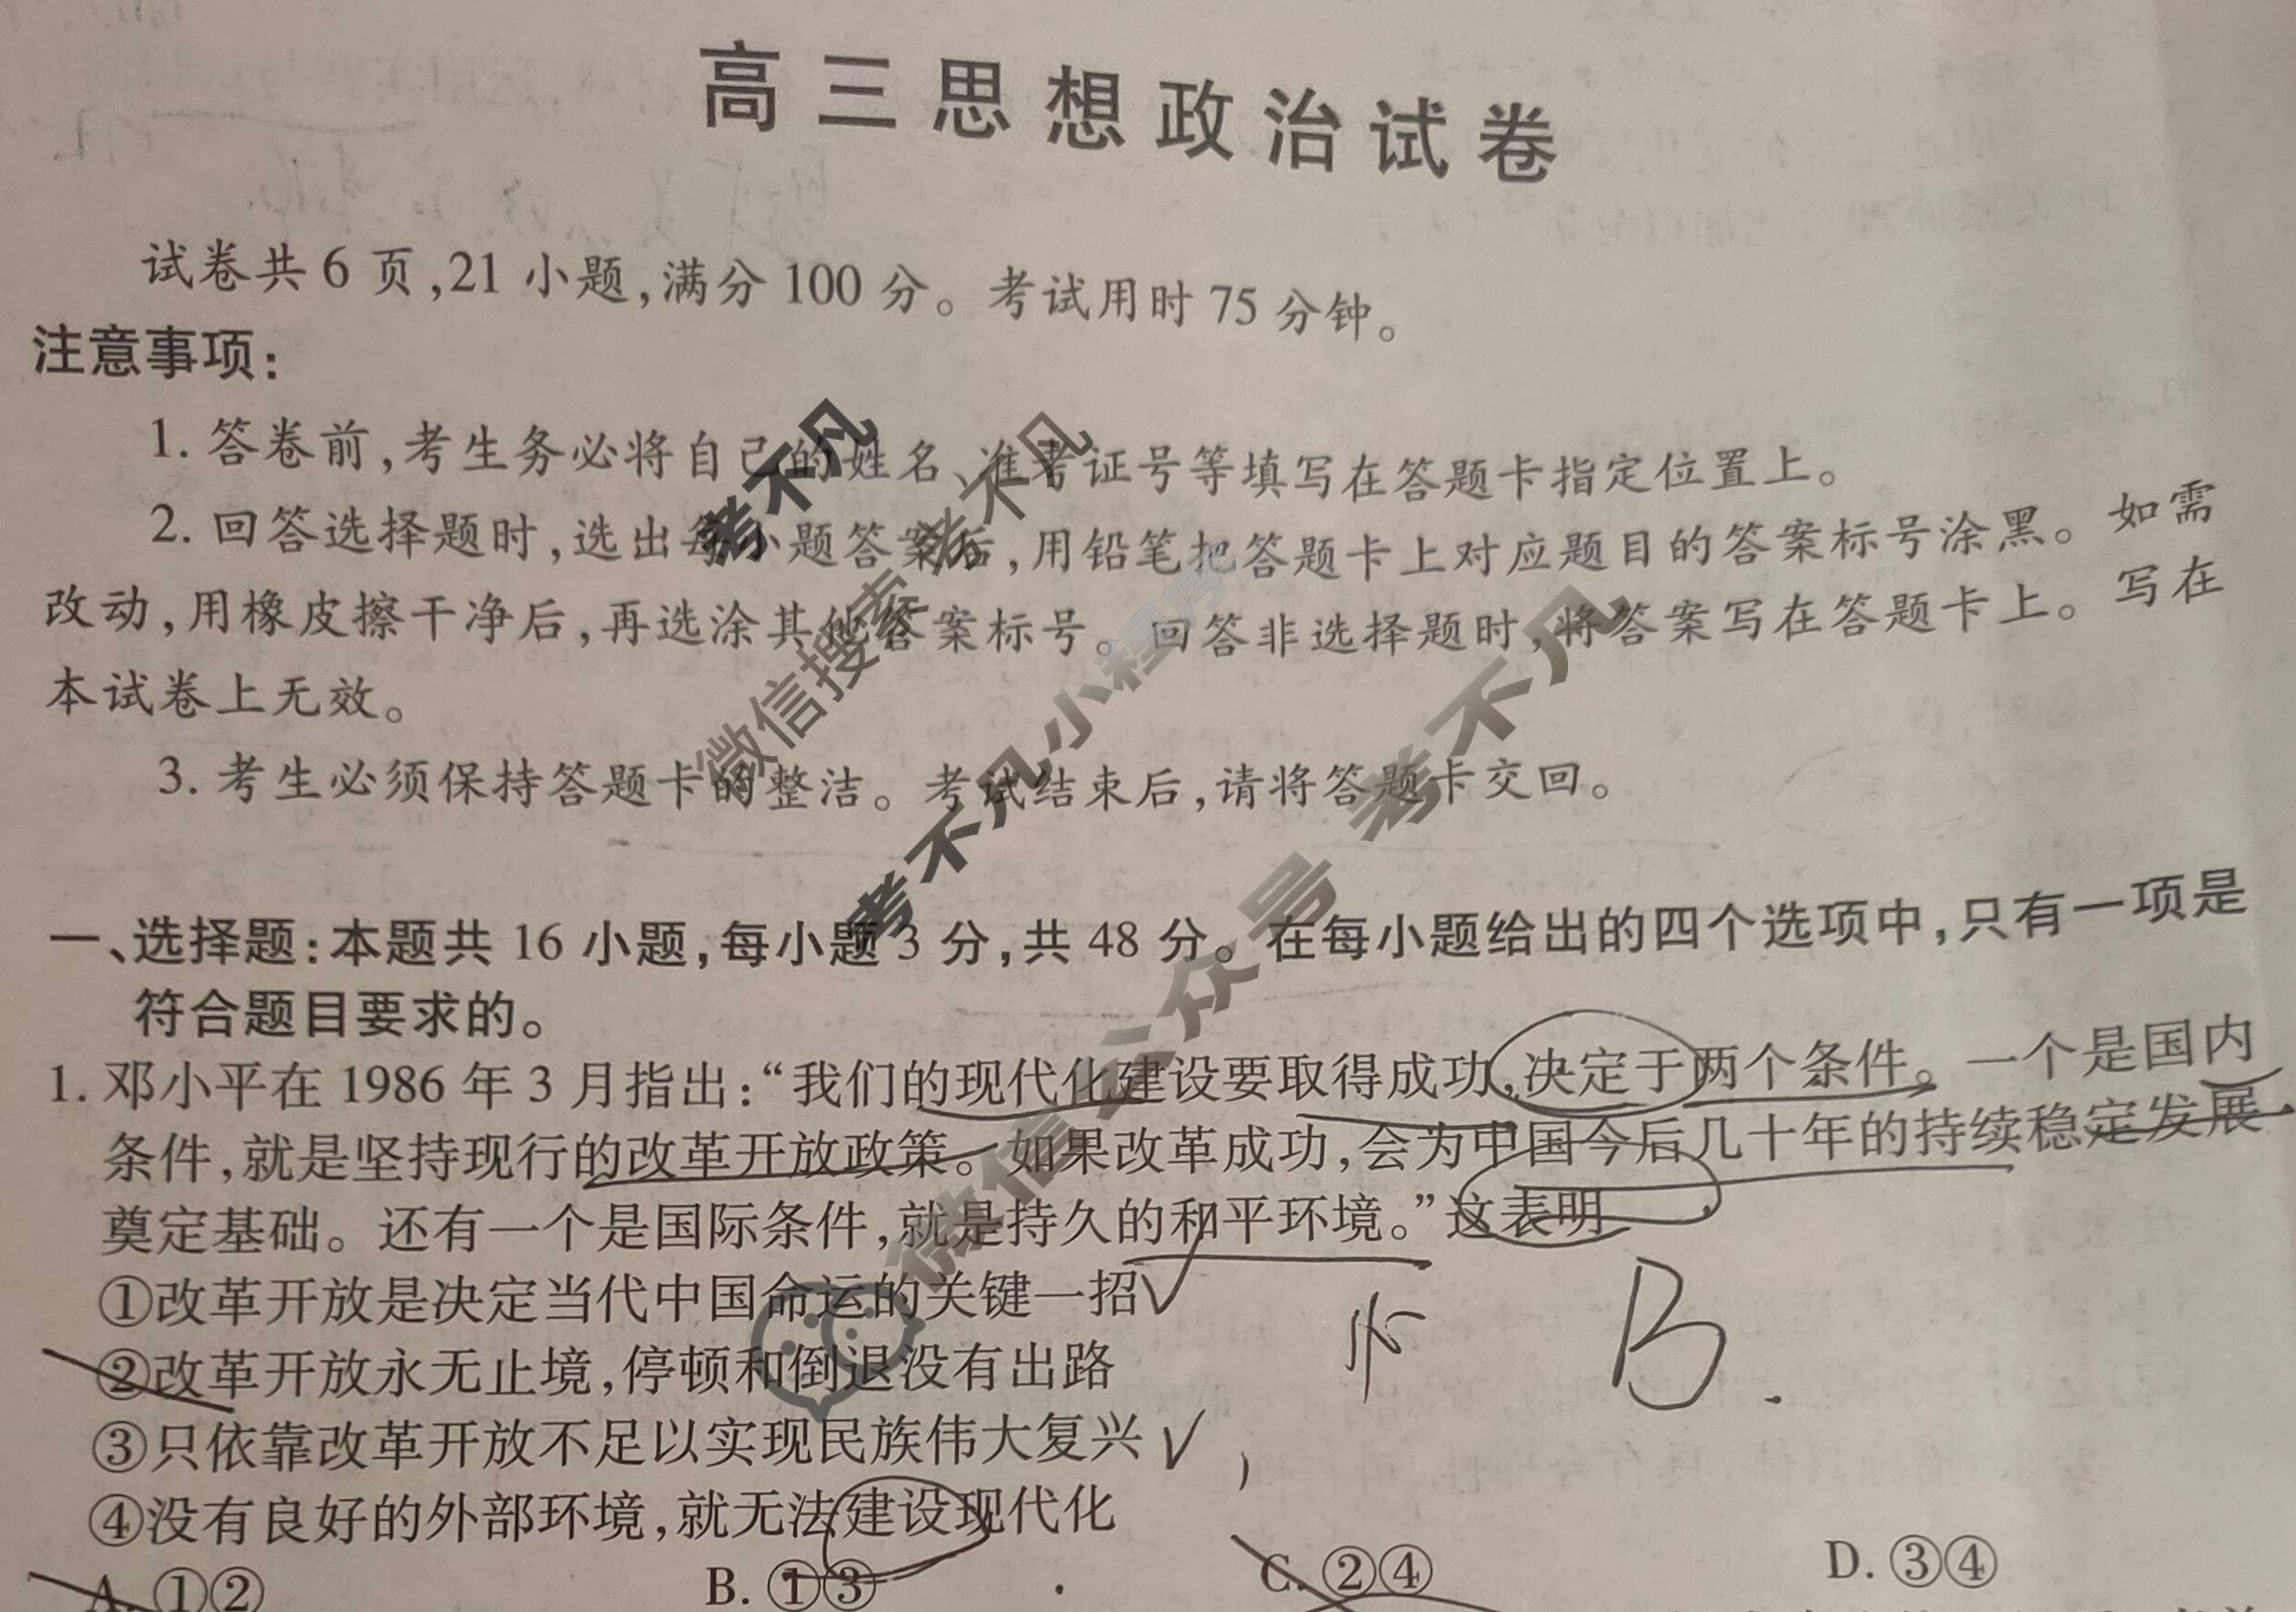 高三思想政治试卷
试卷共6页,21小题,满分100分。考试用时75分钟。
注意事项:
1. 答卷前,考生务必将自己的姓名、准考证号等填写在答题卡指定位置上。
2. 回答选择题时,选出每小题答案后,用铅笔把答题卡上对应题目的答案标号涂黑。如需
改动,用橡皮擦干净后,再选涂其他答案标号。回答非选择题时,将答案写在答题卡上。写在
本试卷上无效。
3. 考生必须保持答题卡的整洁。考试结束后,请将答题卡交回。
考不凡
微信搜索 考不凡
考不凡小程序
微信公众号 考不凡
一、选择题:本题共16小题,每小题3分,共48分。在每小题给出的四个选项中,只有一项是
符合题目要求的。
1. 邓小平在1986年3月指出:“我们的现代化建设要取得成功,决定于两个条件。一个是国内
条件,就是坚持现行的改革开放政策。如果改革成功,会为中国今后几十年的持续稳定发展
奠定基础。还有一个是国际条件,就是持久的和平环境。”这表明
①改革开放是决定当代中国命运的关键一招
②改革开放永无止境,停顿和倒退没有出路
③只依靠改革开放不足以实现民族伟大复兴
④没有良好的外部环境,就无法建设现代化
B.
A. ①② B. ①③ C. ②④ D. ③④